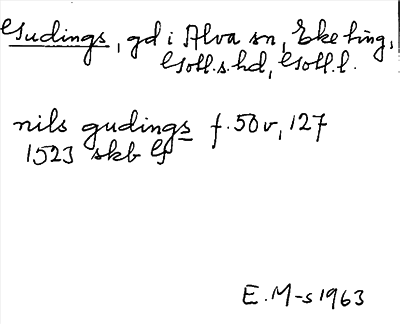 Gudings, gd i Alva sn, Eke ting,
Gotl.s.hd, Gotl.l.
nils gudings f.50v, 127
1523 skb G
E.M-s 1963